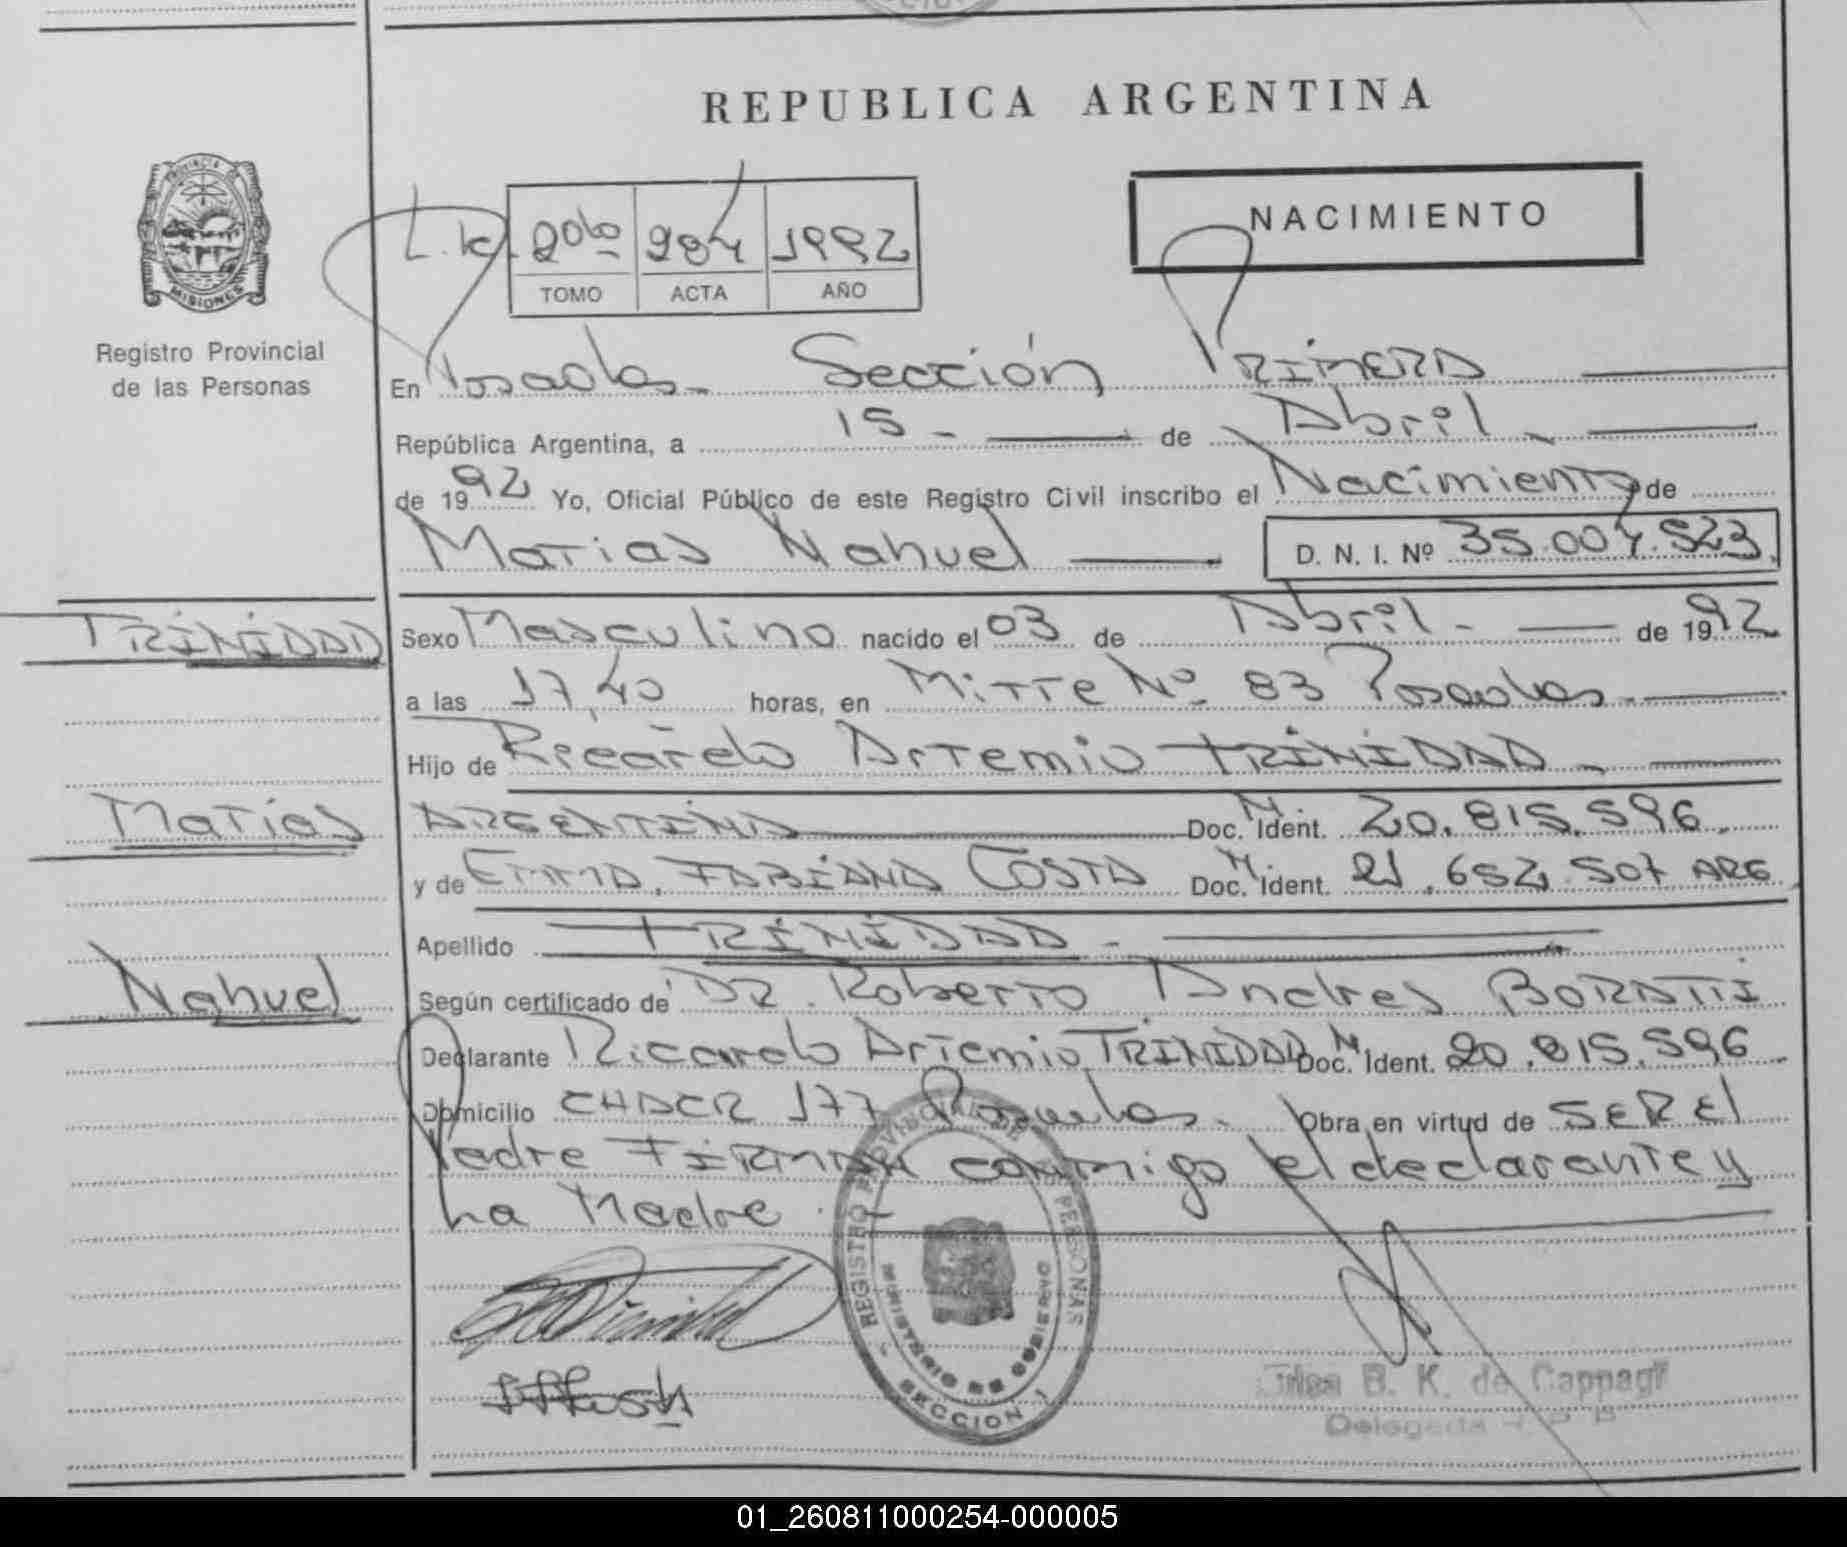 REPUBLICA ARGENTINA
PROVINCIA DE
MISIONES
Registro Provincial
de las Personas
2do 984 1992
TOMO ACTA AÑO
NACIMIENTO
En Posadas - Sección PRIMERA
República Argentina, a 15 - de Abril -
de 1992 Yo, Oficial Público de este Registro Civil inscribo el Nacimiento de
Matias Nahuel D. N. I. Nº 35.004.523
TRINIDAD
Sexo Masculino nacido el 03 de Abril - de 1992
a las 17,40 horas, en Mitre Nº 83 Posadas -
Hijo de Ricardo Artemio TRINIDAD -
Matías
ARGENTINA Doc. M. Ident. 20.815.596.
y de EMMA, FABIANA COSTA Doc. M. Ident. 21.652.507 ARG
Apellido TRINIDAD -
Nahuel
Según certificado de DR. Roberto Andres BORATTI
Declarante Ricardo Artemio TRINIDAD Doc. M Ident. 20.815.596
Domicilio 177 Posadas - Obra en virtud de SER El
Padre FIRMAN conmigo el declarante y
La Madre . -
REGISTRO PROVINCIAL DE LAS PERSONAS
MINISTERIO DE GOBIERNO
SECCION 1
B. K. de Cappagli
Delegada R P P
01_260811000254-000005